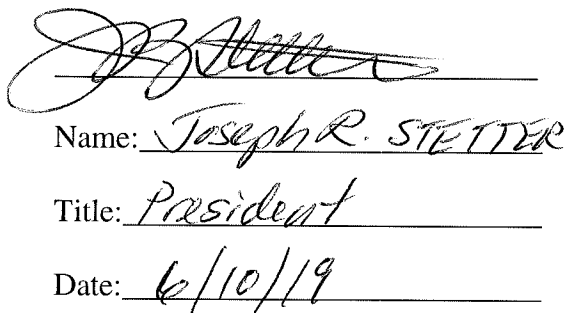 Name: Joseph R. STETTER
Title: President
Date: 6/10/19